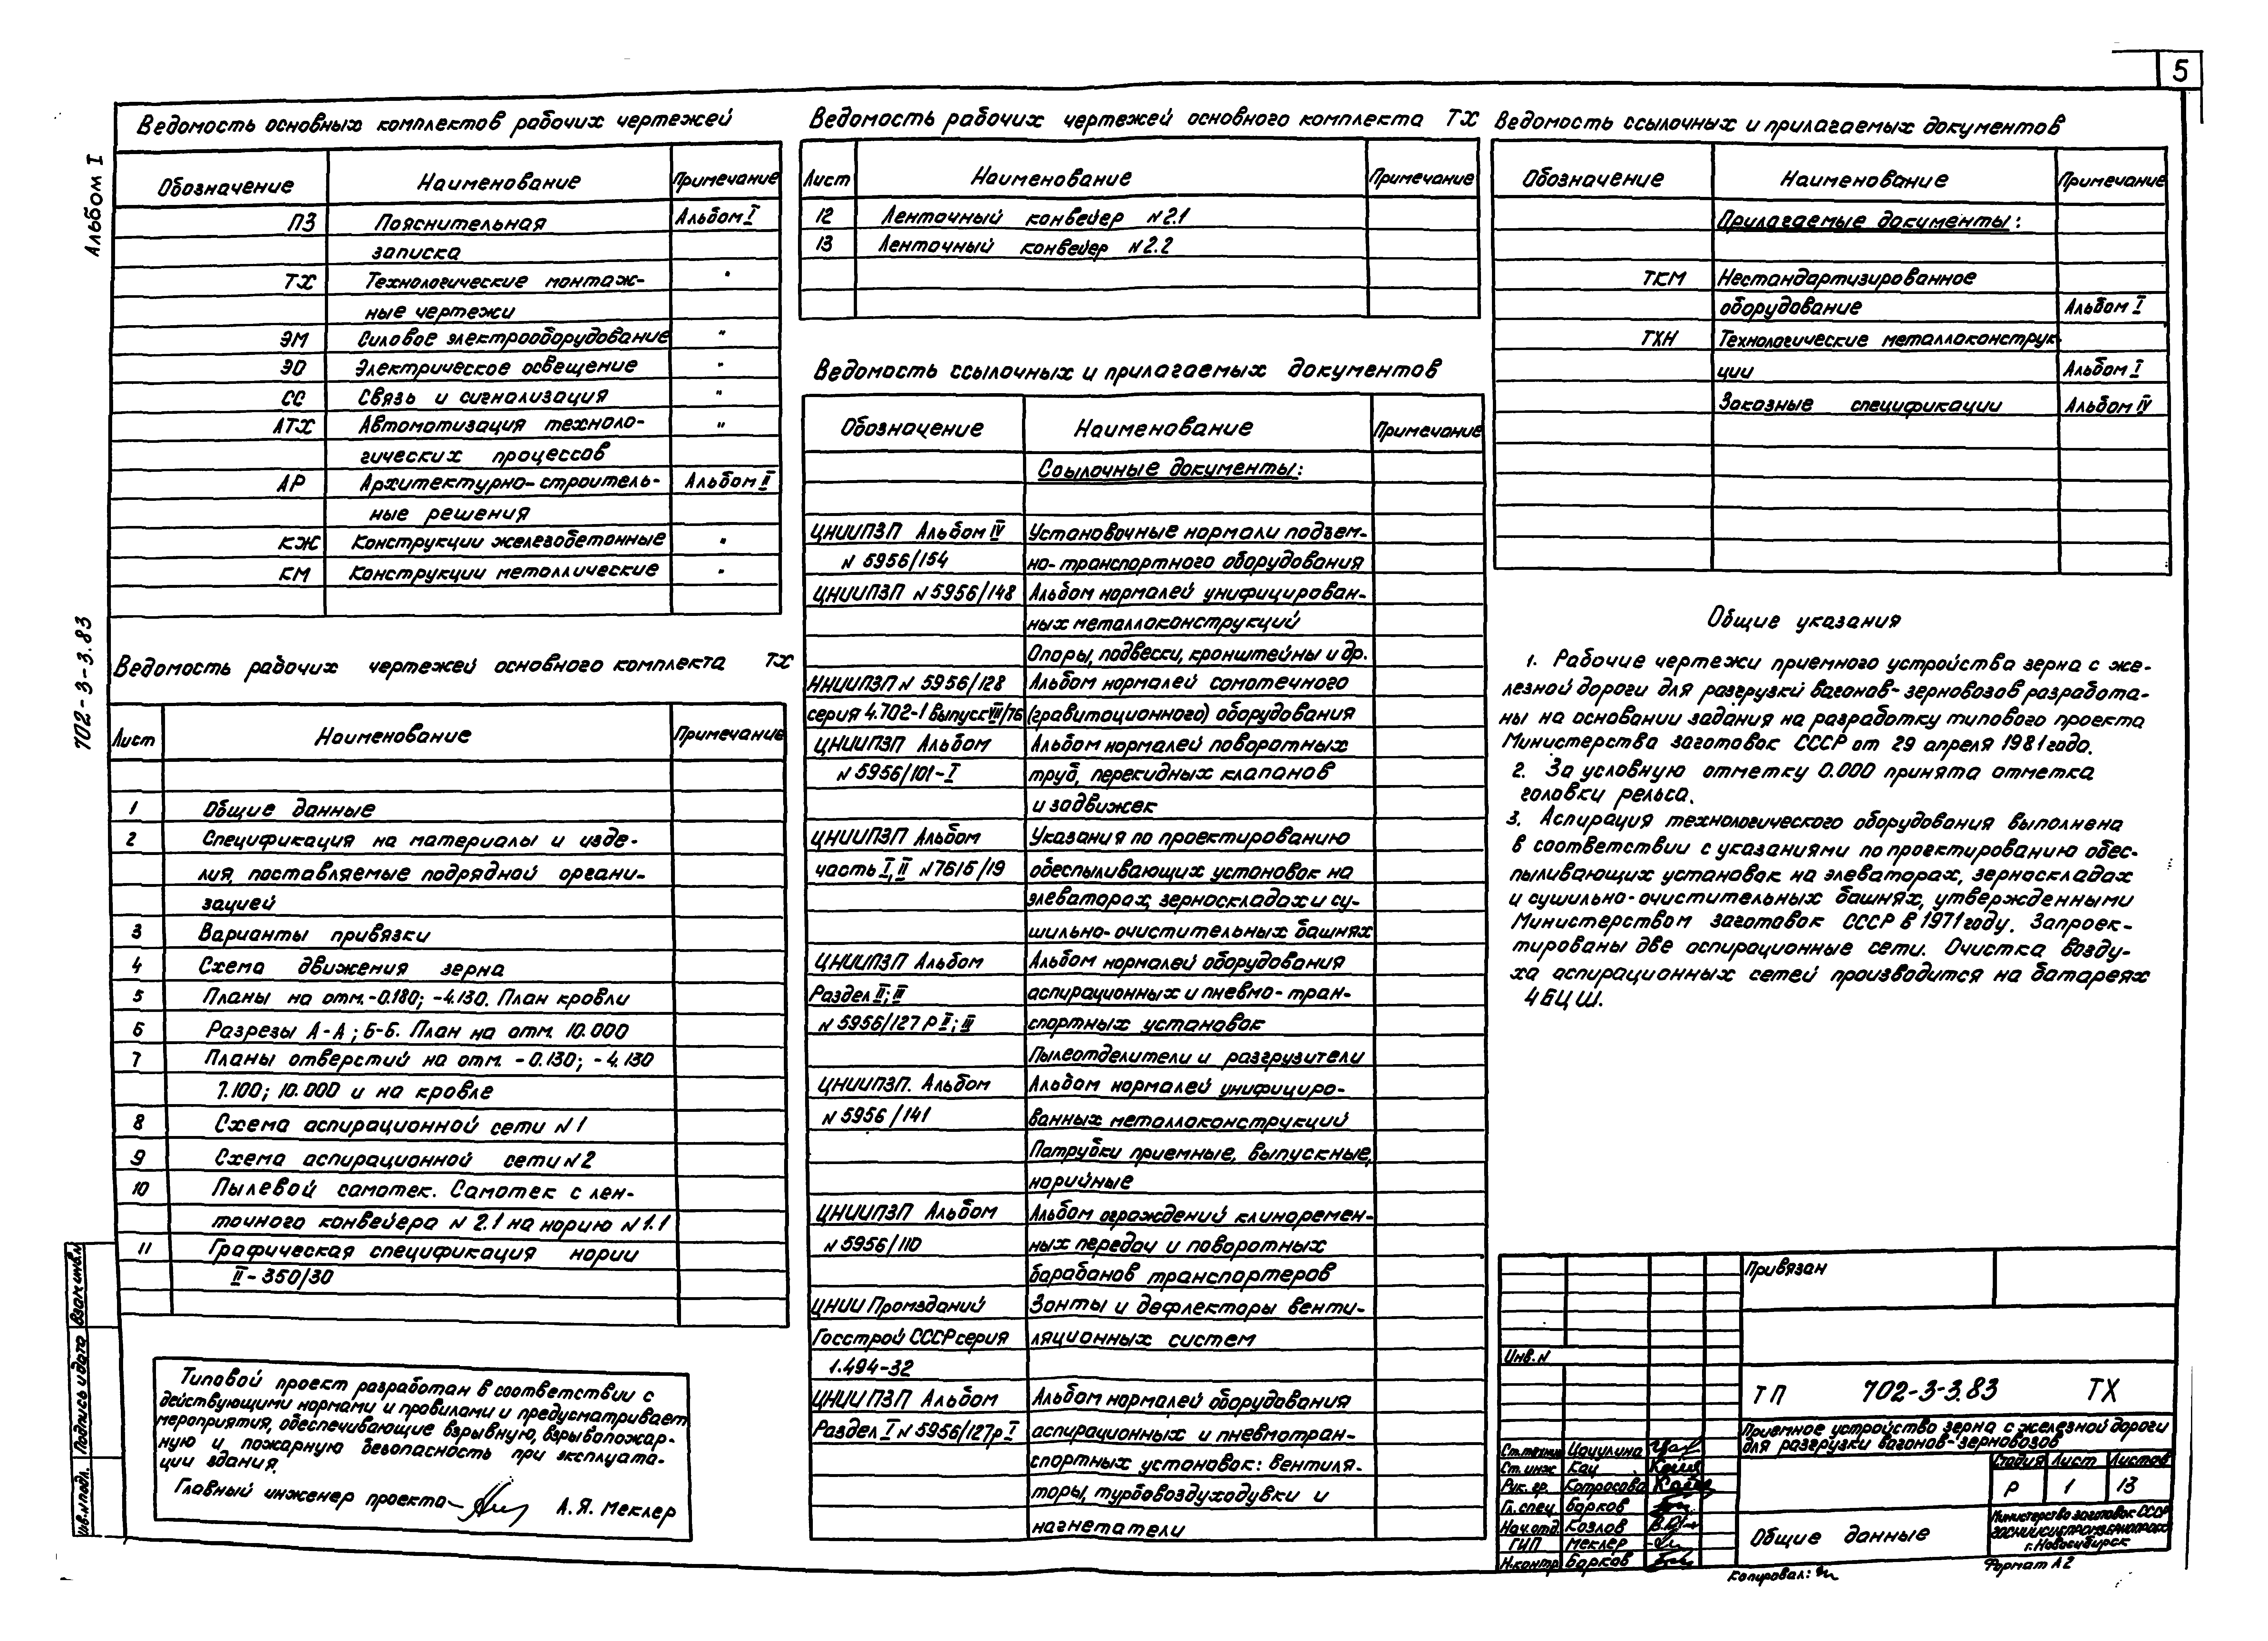 5
Альбом I
702-3-3.83
Ведомость основных комплектов рабочих чертежей
Обозначение Наименование Примечание
ПЗ Пояснительная Альбом I
записка
ТХ Технологические монтаж- "
ные чертежи
ЭМ Силовое электрооборудование "
ЭО Электрическое освещение "
СС Связь и сигнализация "
АТХ Автоматизация техноло- "
гических процессов
АР Архитектурно-строитель- Альбом II
ные решения
КЖ Конструкции железобетонные "
КМ Конструкции металлические "
Ведомость рабочих чертежей основного комплекта ТХ
Лист Наименование Примечание
1 Общие данные
2 Спецификация на материалы и изде-
лия, поставляемые подрядной органи-
зацией
3 Варианты привязки
4 Схема движения зерна
5 Планы на отм. -0.180; -4.130. План кровли
6 Разрезы А-А; Б-Б. План на отм. 10.000
7 Планы отверстий на отм. -0.130; -4.130
7.100; 10.000 и на кровле
8 Схема аспирационной сети N1
9 Схема аспирационной сети N2
10 Пылевой самотек. Самотек с лен-
точного конвейера N 2.1 на норию N1.1
11 Графическая спецификация нории
II-350/30
Типовой проект разработан в соответствии с
действующими нормами и правилами и предусматривает
мероприятия, обеспечивающие взрывную, взрывопожар-
ную и пожарную безопасность при эксплуата-
ции здания.
Главный инженер проекта А.Я. Меклер
Ведомость рабочих чертежей основного комплекта ТХ
Лист Наименование Примечание
12 Ленточный конвейер N2.1
13 Ленточный конвейер N2.2
Ведомость ссылочных и прилагаемых документов
Обозначение Наименование Примечание
Ссылочные документы:
ЦНИИПЗП Альбом IV Установочные нормали подъем-
N 5956/154 но-транспортного оборудования
ЦНИИПЗП N5956/148 Альбом нормалей унифицирован-
ных металлоконструкций
Опоры, подвески, кронштейны и др.
ННИИПЗП N 5956/128 Альбом нормалей самотечного
серия 4.702-1 выпуск VIII/76 (гравитационного) оборудования
ЦНИИПЗП Альбом Альбом нормалей поворотных
N5956/101-I труб, перекидных клапанов
и задвижек
ЦНИИПЗП Альбом Указания по проектированию
часть I, II N7616/19 обеспыливающих установок на
элеваторах, зерноскладах и су-
шильно-очистительных башнях
ЦНИИПЗП Альбом Альбом нормалей оборудования
Раздел II; III аспирационных и пневмо-тран-
N5956/127 Р II; III спортных установок
Пылеотделители и разгрузители
ЦНИИПЗП. Альбом Альбом нормалей унифициро-
N5956/141 ванных металлоконструкций
Патрубки приемные, выпускные,
норийные
ЦНИИПЗП Альбом Альбом ограждений клиноремен-
N5956/110 ных передач и поворотных
барабанов транспортеров
ЦНИИ Промзданий Зонты и дефлекторы венти-
Госстрой СССР серия ляционных систем
1.494-32
ЦНИИПЗП Альбом Альбом нормалей оборудования
Раздел I N5956/127р I аспирационных и пневмотран-
спортных установок: вентиля-
торы, турбовоздуходувки и
нагнетатели
Ведомость ссылочных и прилагаемых документов
Обозначение Наименование Примечание
Прилагаемые документы:
ТКМ Нестандартизированное
оборудование Альбом I
ТХН Технологические металлоконструк-
ции Альбом I
Заказные спецификации Альбом IV
Общие указания
1. Рабочие чертежи приемного устройства зерна с же-
лезной дороги для разгрузки вагонов-зерновозов разработа-
ны на основании задания на разработку типового проекта
Министерства заготовок СССР от 29 апреля 1981 года.
2. За условную отметку 0.000 принята отметка
головки рельса.
3. Аспирация технологического оборудования выполнена
в соответствии с указаниями по проектированию обес-
пыливающих установок на элеваторах, зерноскладах
и сушильно-очистительных башнях, утвержденными
Министерством заготовок СССР в 1971 году. Запроек-
тированы две аспирационные сети. Очистка возду-
ха аспирационных сетей производится на батареях
4БЦШ.
Привязан
Инв. N
ТП 702-3-3.83 ТХ
Приемное устройство зерна с железной дороги
для разгрузки вагонов-зерновозов
Ст. техник Цацулина
Ст. инж. Кац
Рук. гр. Котрасова
Гл. спец. Барков
Нач. отд. Козлов
ГИП Меклер
Н. контр. Барков
Стадия Лист Листов
Р 1 13
Общие данные
Министерство заготовок СССР
г. Новосибирск
Копировал:
Формат А2
Взам. инв. N
Подпись и дата
Инв. N подл.